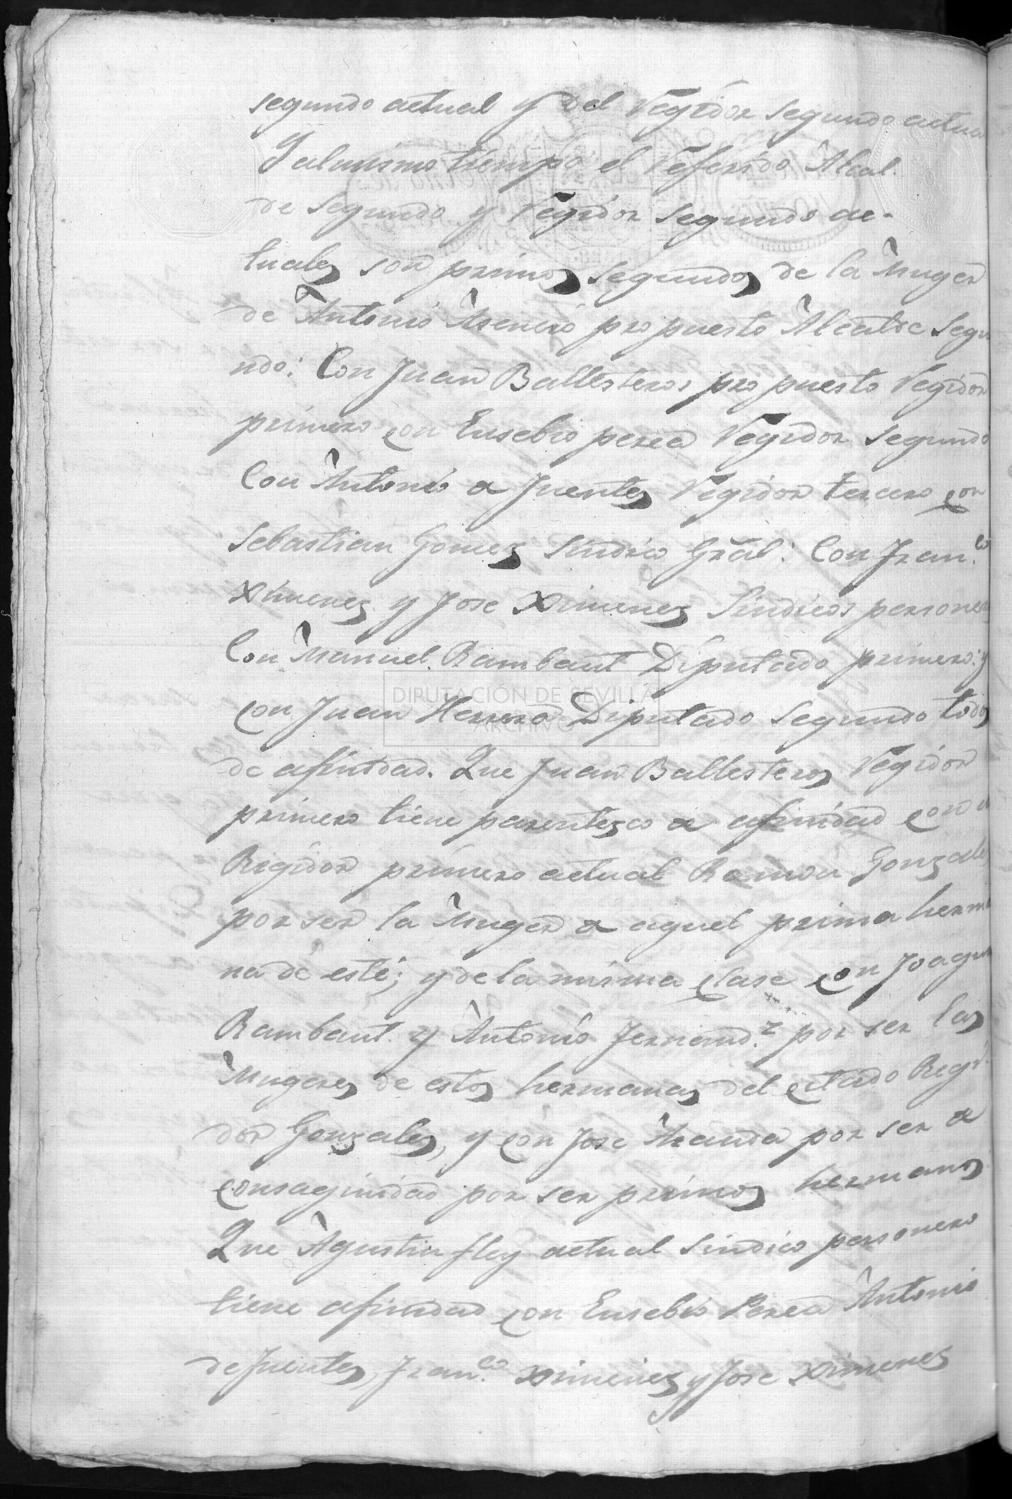 segundo actual y del Regidor segundo actua
Y al mismo tiempo el referido Alcal.
de segundo y Regidor segundo ac-
tuales son primos segundos de la Muger
de Antonio Asencio propuesto Alcalde segu
ndo: Con Juan Ballesteros propuesto Regidor
primero con Eusebio perea Regidor segundo
Con Antonio de fuentes Regidor tercero con
Sebastian Gomez Sindico Gral: Con Franco.
Ximenez y Jose Ximenez Sindicos persone
Con Manuel Rambaut Diputado primero: y
con Juan Herrero Diputado segundo todos
de afinidad. Que Juan Ballesteros Regidor
primero tiene parentesco de afinidad con
Regidor primero actual Ramon Gonzalez
por ser la Muger de aquel prima herma
na de este; y de la misma clase con Joaquin
Rambaut y Antonio Fernandz. por ser las
Mugeres de estos hermanas del citado Regi-
dor Gonzalez, y con Jose Aranda por ser de
consaginidad por ser primos hermanos
Que Agustin fley actual sindico personero
tiene afinidad con Eusebio Perea Antonio
de fuentes, Franco. Ximenez y Jose Ximenez
DIPUTACIÓN DE SEVILLA
ARCHIVO